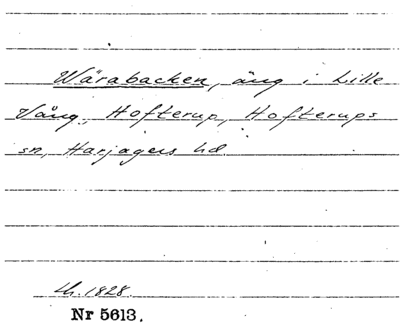 Wärabacken, äng i Lille
Vång, Hofterup, Hofterups
sn, Harjagers hd.
Lh. 1828.
Nr 5613.